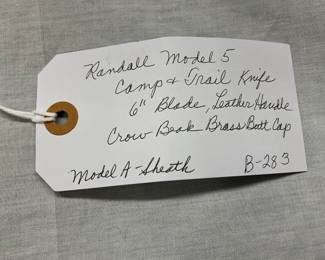 Randall Model 5
Camp & Trail Knife
6" Blade, Leather Handle
Crow Beak Brass Butt Cap
Model A-Sheath B-283